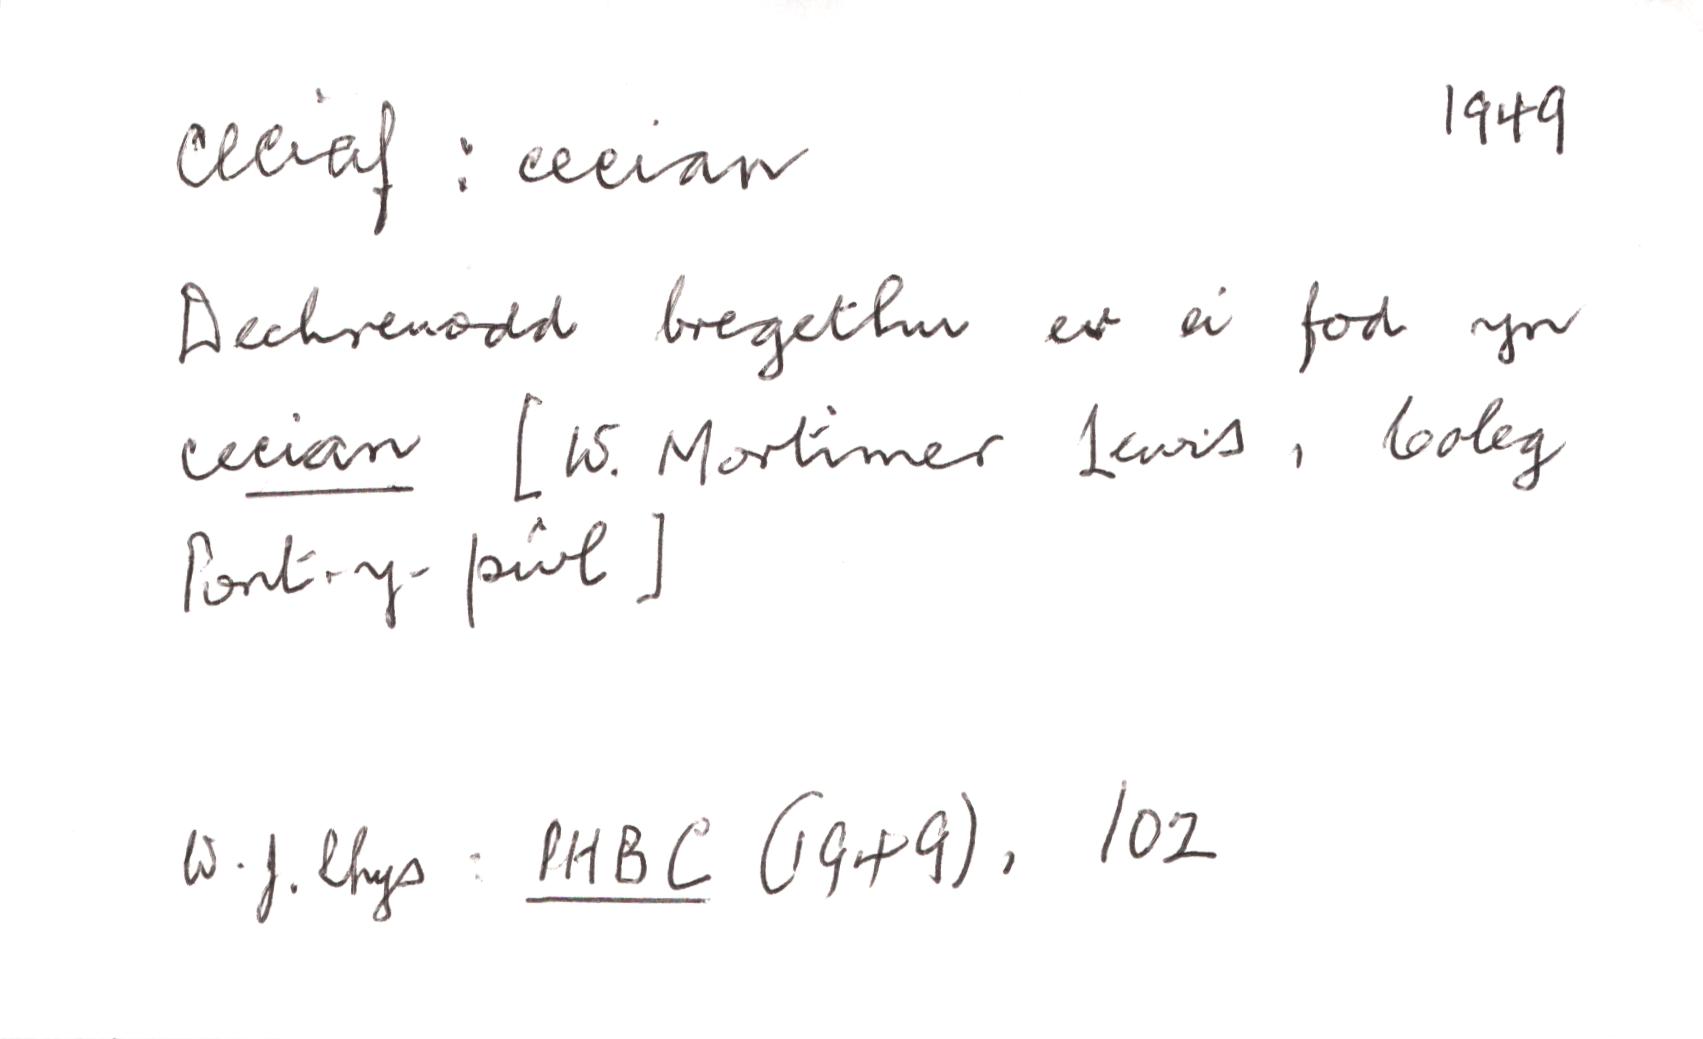 ceciaf : cecian 1949
Dechreuodd bregethu er ei fod yn
cecian [W. Mortimer Lewis, Coleg
Pont-y-pŵl]
W. J. Rhys : PHBC (1949), 102